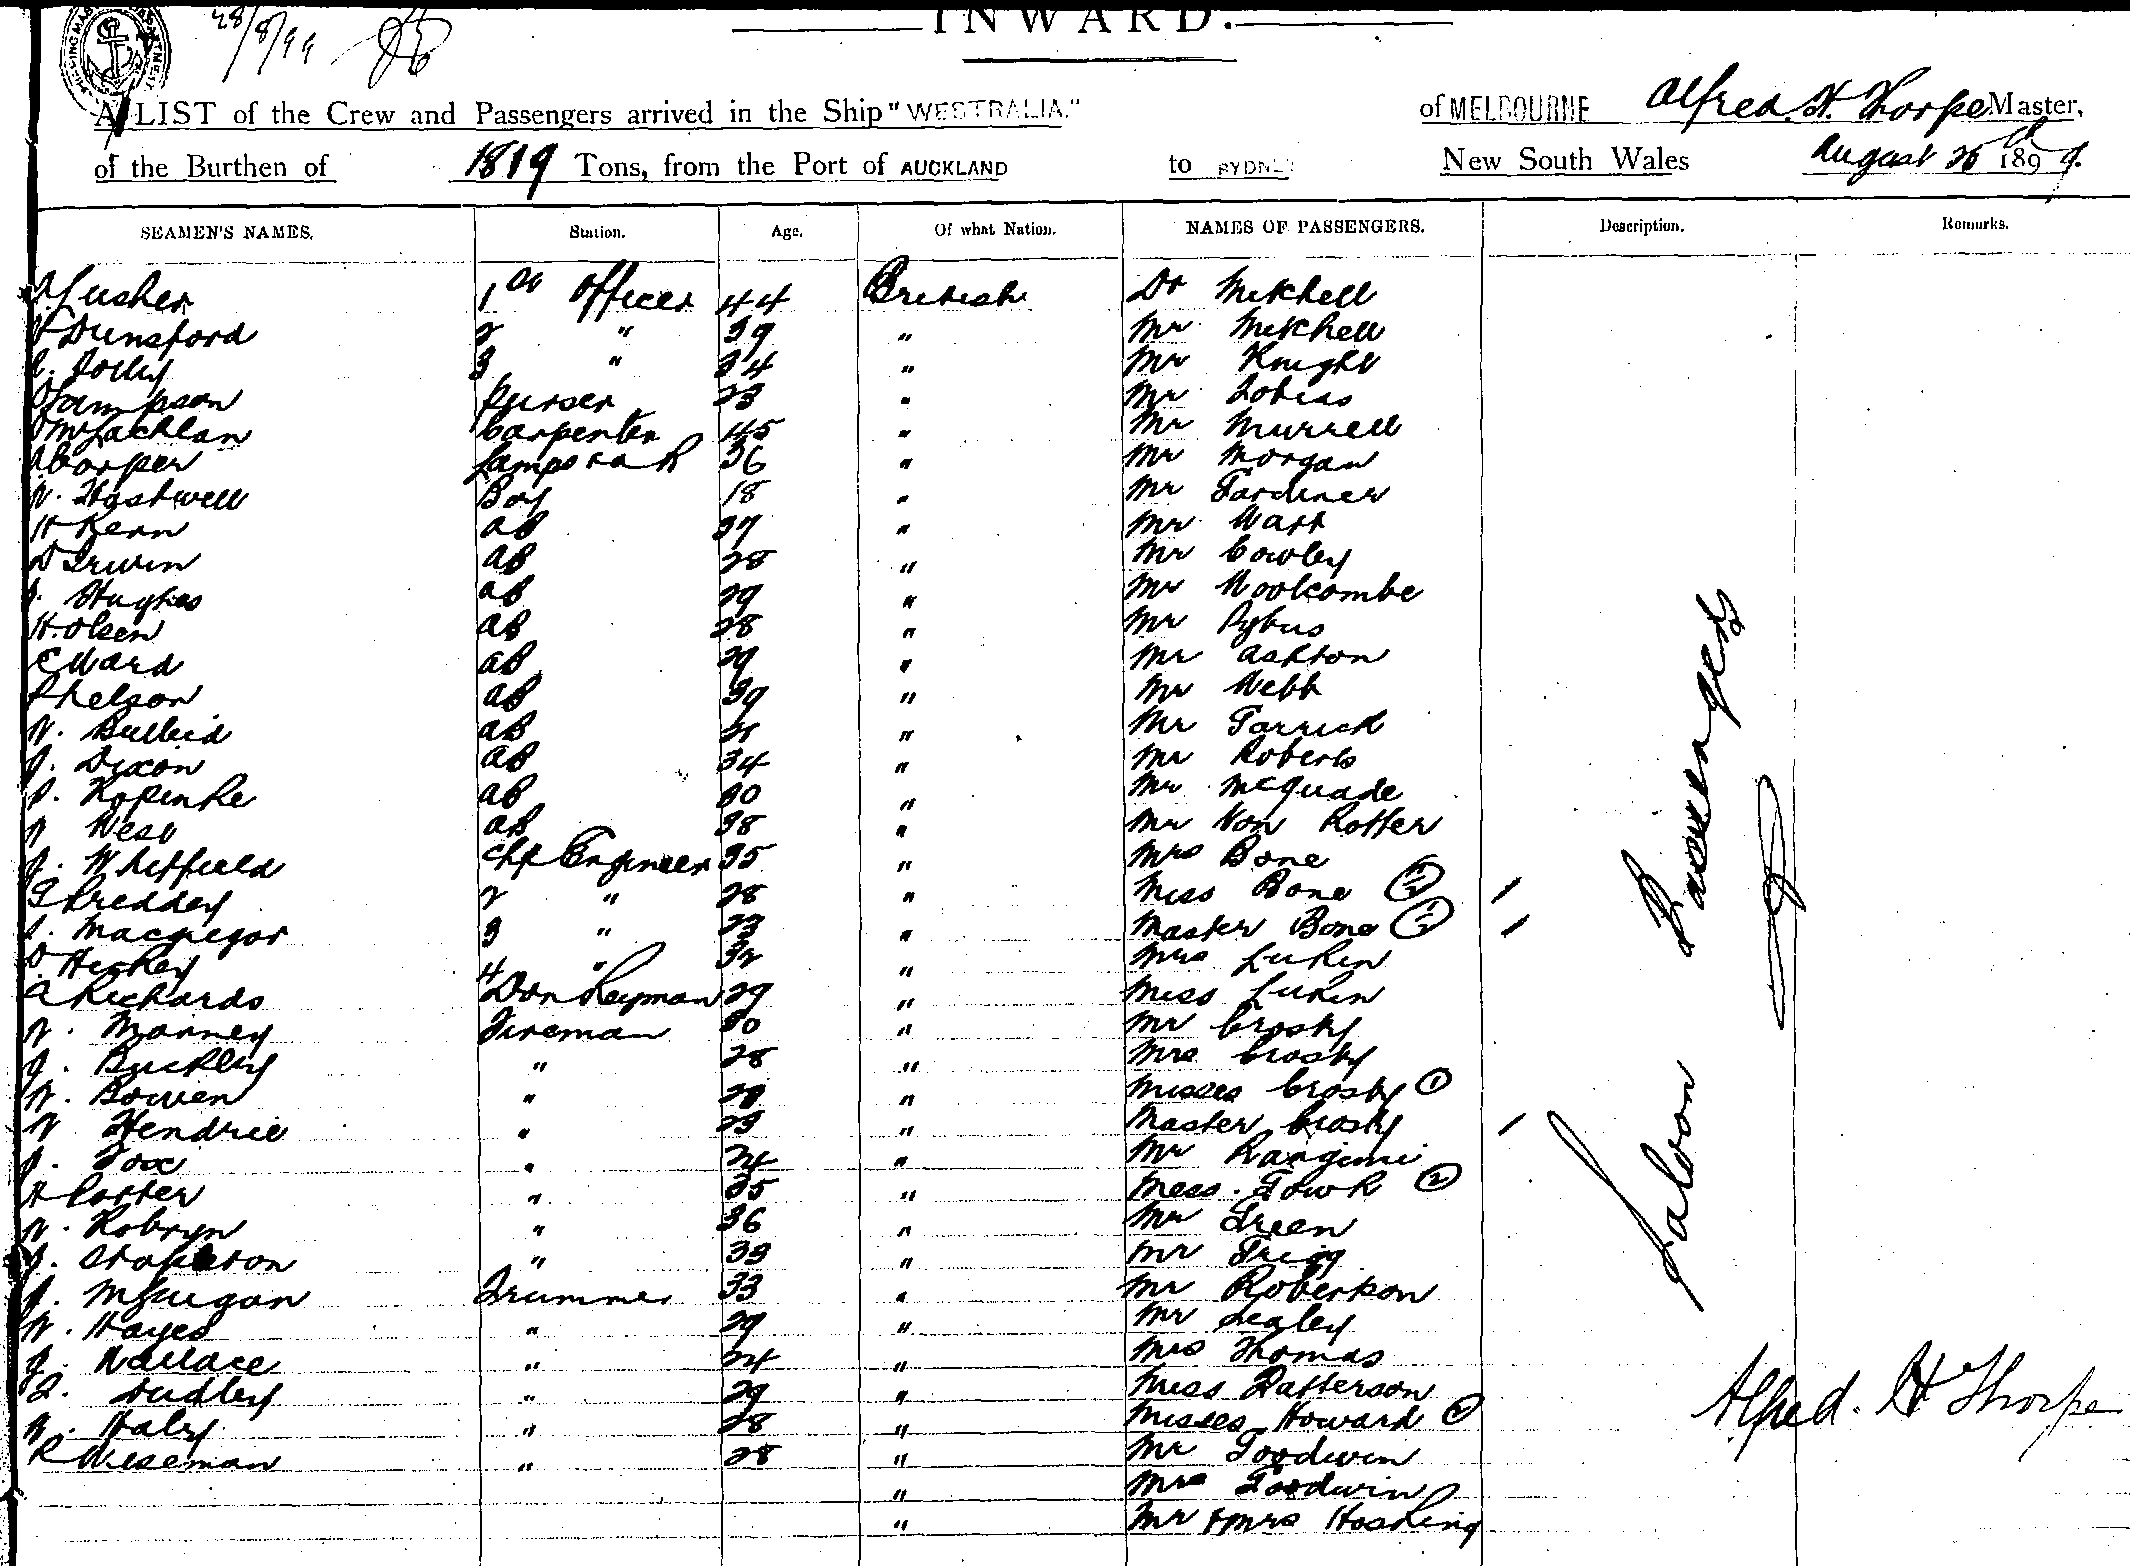 28/8/99
INWARD.
A LIST of the Crew and Passengers arrived in the Ship "WESTRALIA." of MELBOURNE Alfred. H. Thorpe Master,
of the Burthen of 1819 Tons, from the Port of AUCKLAND to SYDNEY New South Wales August 26th 1899.
SEAMEN'S NAMES. Station. Age. Of what Nation. NAMES OF PASSENGERS. Description. Remarks.
Lusher 1st Officer 44 British Dr Mitchell
Dunsford 2 " 39 " Mr Mitchell
Jolly 3 " 34 " Mr Knight
Sampson Purser 23 " Mr Tobias
McLachlan Carpenter 45 " Mr Murrell
Cooper Lamps 36 " Mr Morgan
W. Hastwell Boy 18 " Mr Gardiner
H Kern AB 37 " Mr Watt
D Irwin AB 28 " Mr Cowley
J. Hughes AB 29 " Mr Woolcombe
H. Olsen AB 28 " Mr Pybus
C Ward AB 29 " Mr Ashton
P Nelson AB 39 " Mr Webb
W. Bullied AB " Mr Garrick
J. Dixon AB 34 " Mr Roberts
Kopinke AB 30 " Mr McQuade
W West AB 38 " Mr Von Rotter
J. Whitfield Chf Engineer 35 " Mrs Bone
Threddey 2 " 28 " Miss Bone
Macgregor 3 " 23 " Master Bone
Hickey 4 " 32 " Mrs Lukin
A Richards Donkeyman 29 " Miss Lukin
W. Manney Fireman 30 " Mr Crosby
J. Buckley " 28 " Mrs Crosby
W. Bowen " " Misses Crosby 1
W Hendrie " 23 " Master Crosby
J. Fox " 24 " Mr
H Potter " 35 " Miss. Gowk 2
W. Robryn " 36 " Mr Green
J. Stapleton " 33 " Mr Trigg
J. McGuigan Trimmer 33 " Mr Robertson
W. Hayes " 29 " Mr Segley
J. Wallace " 24 " Mrs Thomas
Dudley " 29 " Miss Patterson
W. Haley " 28 " Misses Howard
R Wiseman " 28 " Mr Goodwin
" Mrs Goodwin
" Mr & Mrs Hosking
Saloon Passengers
Alfred. H Thorpe